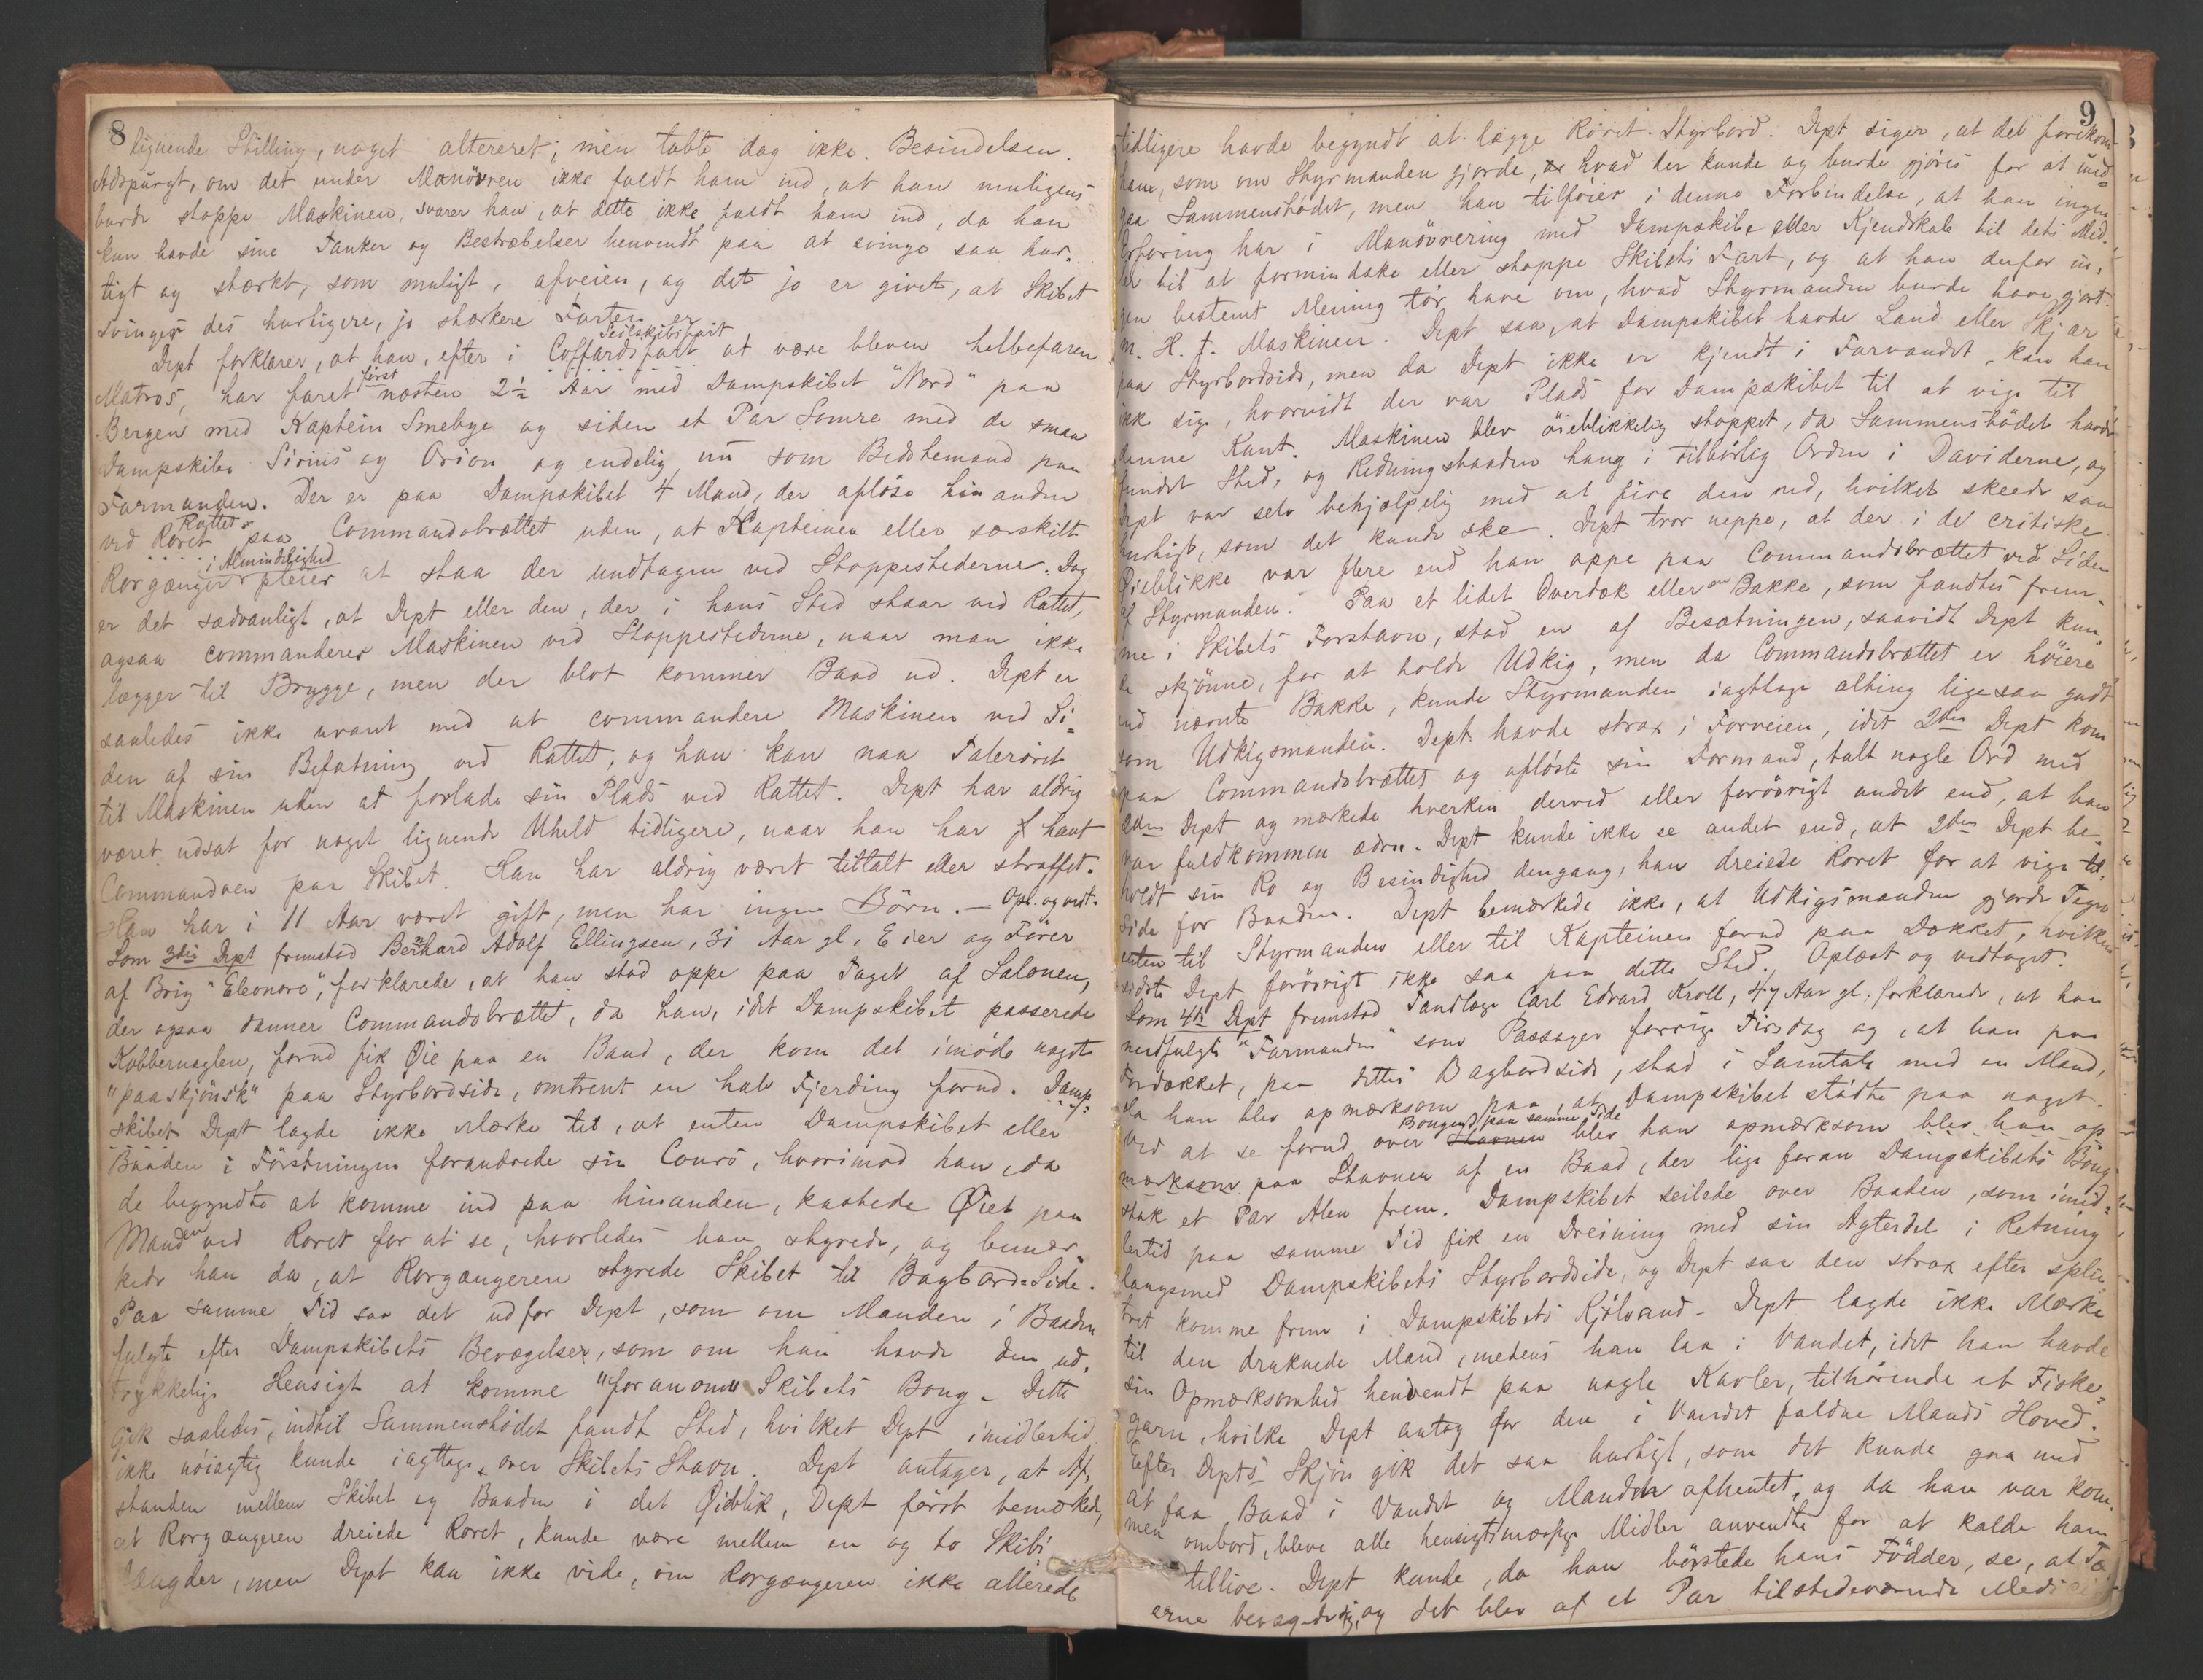 8
lignende Stilling, noget altereret; men tabte dog ikke Besindelsen.
Adspurgt, om det under Manøvren ikke faldt ham ind, at han muligens
burde stoppe Maskinen, svarer han, at dette ikke faldt ham ind, da han
kun havde sine Tanker og Bestræbelser henvendt paa at svinge saa hur-
tigt og stærkt, som muligt, afveien, og det jo er givet, at Skibet
svinges des hurtigere, jo stærkere Farten er
Seilskibsfart
Dept forklarer, at han, efter i Coffardifart at være bleven helbefaren
Matros, har faret først næsten 2½ Aar med Dampskibet "Nord" paa
Bergen med Kaptein Smebye og siden et Par Somre med de smaa
Dampskibe Sirius og Orion og endelig nu som Bedstemand paa
Farmanden. Der er paa Dampskibet 4 Mand, der afløse hinanden
Rattet
ved Roret paa Commandobrættet uden, at Kapteinen eller særskilt
i Almindelighed
Rorgænger pleier at staa der undtagen ved Stoppestederne. Dog
er det sædvanligt, at Dept eller den, der i hans Sted staar ved Rattet,
ogsaa commanderer Maskinen ved Stoppestederne, naar man ikke
lægger til Brygge, men der blot kommer Baad ud. Dept er
saaledes ikke uvant med at commandere Maskinen ved Si-
den af sin Befatning ved Rattet, og han kan naa Talerøret
til Maskinen uden at forlade sin Plads ved Rattet. Dept har aldrig
været udsat for noget lignende Uheld tidligere, naar han har havt
Commandoen paa Skibet. Han har aldrig været tiltalt eller straffet.
Han har i 11 Aar været gift, men har ingen Børn. — Opl. og vedt.
Som 3die Dept fremstod Bernhard Adolf Ellingsen, 31 Aar gl, Eier og Fører
af Brig "Eleonore", forklarede, at han stod oppe paa Taget af Salonen,
der ogsaa danner Commandobrættet, da han, idet Dampskibet passerede
Kobbernaglen, forud fik Øie paa en Baad, der kom det imøde noget
"paaskjönsk" paa Styrbordside, omtrent en halv Fjerding forud. Damp-
skibet Dept lagde ikke Mærke til, at enten Dampskibet eller
Baaden i Førstningen forandrede sin Cours, hvorimod han, da
de begyndte at komme ind paa hinanden, kastede Øiet paa
Manden ved Roret for at se, hvorledes han styrede, og bemær-
kede han da, at Rorgængeren styrede Skibet til Bagbord-Side.
Paa samme Tid saa det ud for Dept, som om Manden i Baaden
fulgte efter Dampskibets Bevægelser, som om han havde den ud-
trykkelige Hensigt at komme "foranom" Skibets Boug. Dette
gik saaledes, indtil Sammenstødet fandt Sted, hvilket Dept imidlertid
ikke nøiagtig kunde iagttage over Skibets Stavn. Dept antager, at Af-
standen mellem Skibet og Baaden i det Øieblik, Dept først bemærkede,
at Rorgængeren dreiede Roret, kunde være mellem en og to Skibs-
længder, men Dept kan ikke vide, om Rorgængeren ikke allerede
9
tidligere havde begyndt at lægge Roret Styrbord. Dept siger, at det forekom
ham, som om Styrmanden gjorde, hvad der kunde og burde gjøres for at und-
gaa Sammenstødet, men han tilføier i denne Forbindelse, at han ingen
Erfaring har i Manøvrering med Dampskibe eller Kjendskab til dets Mid-
ler til at formindske eller stoppe Skibets Fart, og at han derfor in-
gen bestemt Mening tør have om, hvad Styrmanden burde have gjort
m. H. t. Maskinen. Dept saa, at Dampskibet havde Land eller Skjær
paa Styrbordside, men da Dept ikke er kjendt i Farvandet, kan han
ikke sige, hvorvidt der var Plads for Dampskibet til at vige til
denne Kant. Maskinen blev øieblikkelig stoppet, da Sammenstødet havde
fundet Sted, og Redningsbaaden hang i tilbørlig Orden i Daviderne, og
Dept var selv behjælpelig med at fire den ned, hvilket skeede saa
hurtigt, som det kunde ske. Dept tror neppe, at der i de critiske
Øieblikke var flere end han oppe paa Commandobrættet ved Siden
af Styrmanden. Paa et lidet Overdæk eller en Bakke, som fandtes frem-
me i Skibets Forstavn, stod en af Besætningen, saavidt Dept kun-
de skjønne, for at holde Udkig, men da Commandobrættet er høiere
end nævnte Bakke, kunde Styrmanden iagttage alting ligesaa godt
som Udkigsmanden. Dept havde strax i Forveien, idet 2den Dept kom
paa Commandobrættet og afløste sin Formand, talt nogle Ord med
2den Dept og mærkede hverken derved eller forøvrigt andet end, at han
var fuldkommen ædru. Dept kunde ikke se andet end, at 2den Dept be-
holdt sin Ro og Besindighed dengang, han dreiede Roret for at vige til
Side for Baaden. Dept bemærkede ikke, at Udkigsmanden gjorde Tegn
enten til Styrmanden eller til Kapteinen forud paa Dækket, hvilken
sidste Dept forøvrigt ikke saa paa dette Sted. Oplæst og vedtaget.
Som 4de Dept fremstod Tandlæge Carl Edvard Kroll, 47 Aar gl, forklarede, at han
medfulgte "Farmanden" som Passager forrige Tirsdag og, at han paa
Fordækket, paa dettes Bagbordside, stod i Samtale med en Mand,
da han blev opmærksom paa, at Dampskibet stødte paa noget.
Bougen paa samme Side
Ved at se forud over Stavnen blev han opmærksom blev han op-
mærksom paa Stavnen af en Baad, der lige foran Dampskibets Boug
stak et Par Alen frem. Dampskibet seilede over Baaden, som imid-
lertid paa samme Tid fik en Dreining med sin Agterdel i Retning
langsmed Dampskibets Styrbordside, og Dept saa den strax efter splin-
tret komme frem i Dampskibets Kjølvand. Dept lagde ikke Mærke
til den druknede Mand, medens han laa i Vandet, idet han havde
sin Opmærksomhed henvendt paa nogle Kavler, tilhørende et Fiske-
garn, hvilke Dept antog for den i Vandet faldne Mands Hoved.
Efter Depts Skjøn gik det saa hurtigt, som det kunde gaa med
at faa Baad i Vandet og Manden afhentet, og da han var kom-
men ombord, bleve alle hensigtsmæssige Midler anvendte for at kalde ham
tillive. Dept kunde, da han børstede hans Fødder, se, at Tæ-
erne bevægede sig, og det blev af et Par tilstedeværende